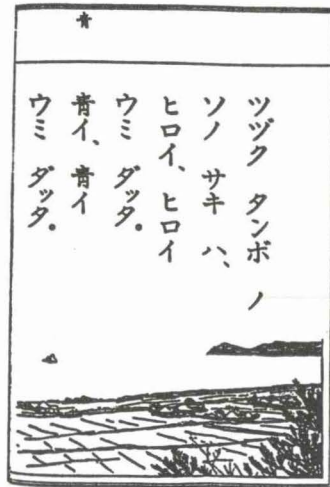 青
ツヅク タンボ ノ
ソノ サキ ハ、
ヒロイ、ヒロイ
ウミ ダッタ。
青イ、青イ
ウミ ダッタ。